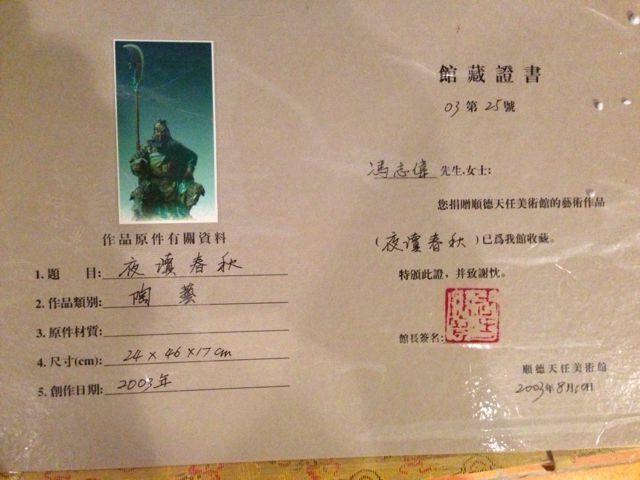 作品原件有關資料
1.題 目: 夜讀春秋
2.作品類别: 陶藝
3.原件材質:
4.尺寸(cm): 24×46×17cm
5.創作日期: 2003年
館藏證書
03 第 25 號
冯志偉 先生.女士:
您捐贈順德天任美術館的藝術作品
(夜讀春秋)已爲我館收藏。
特頒此證，并致謝忱。
館長簽名:
順德天任美術館
2003年8月10日